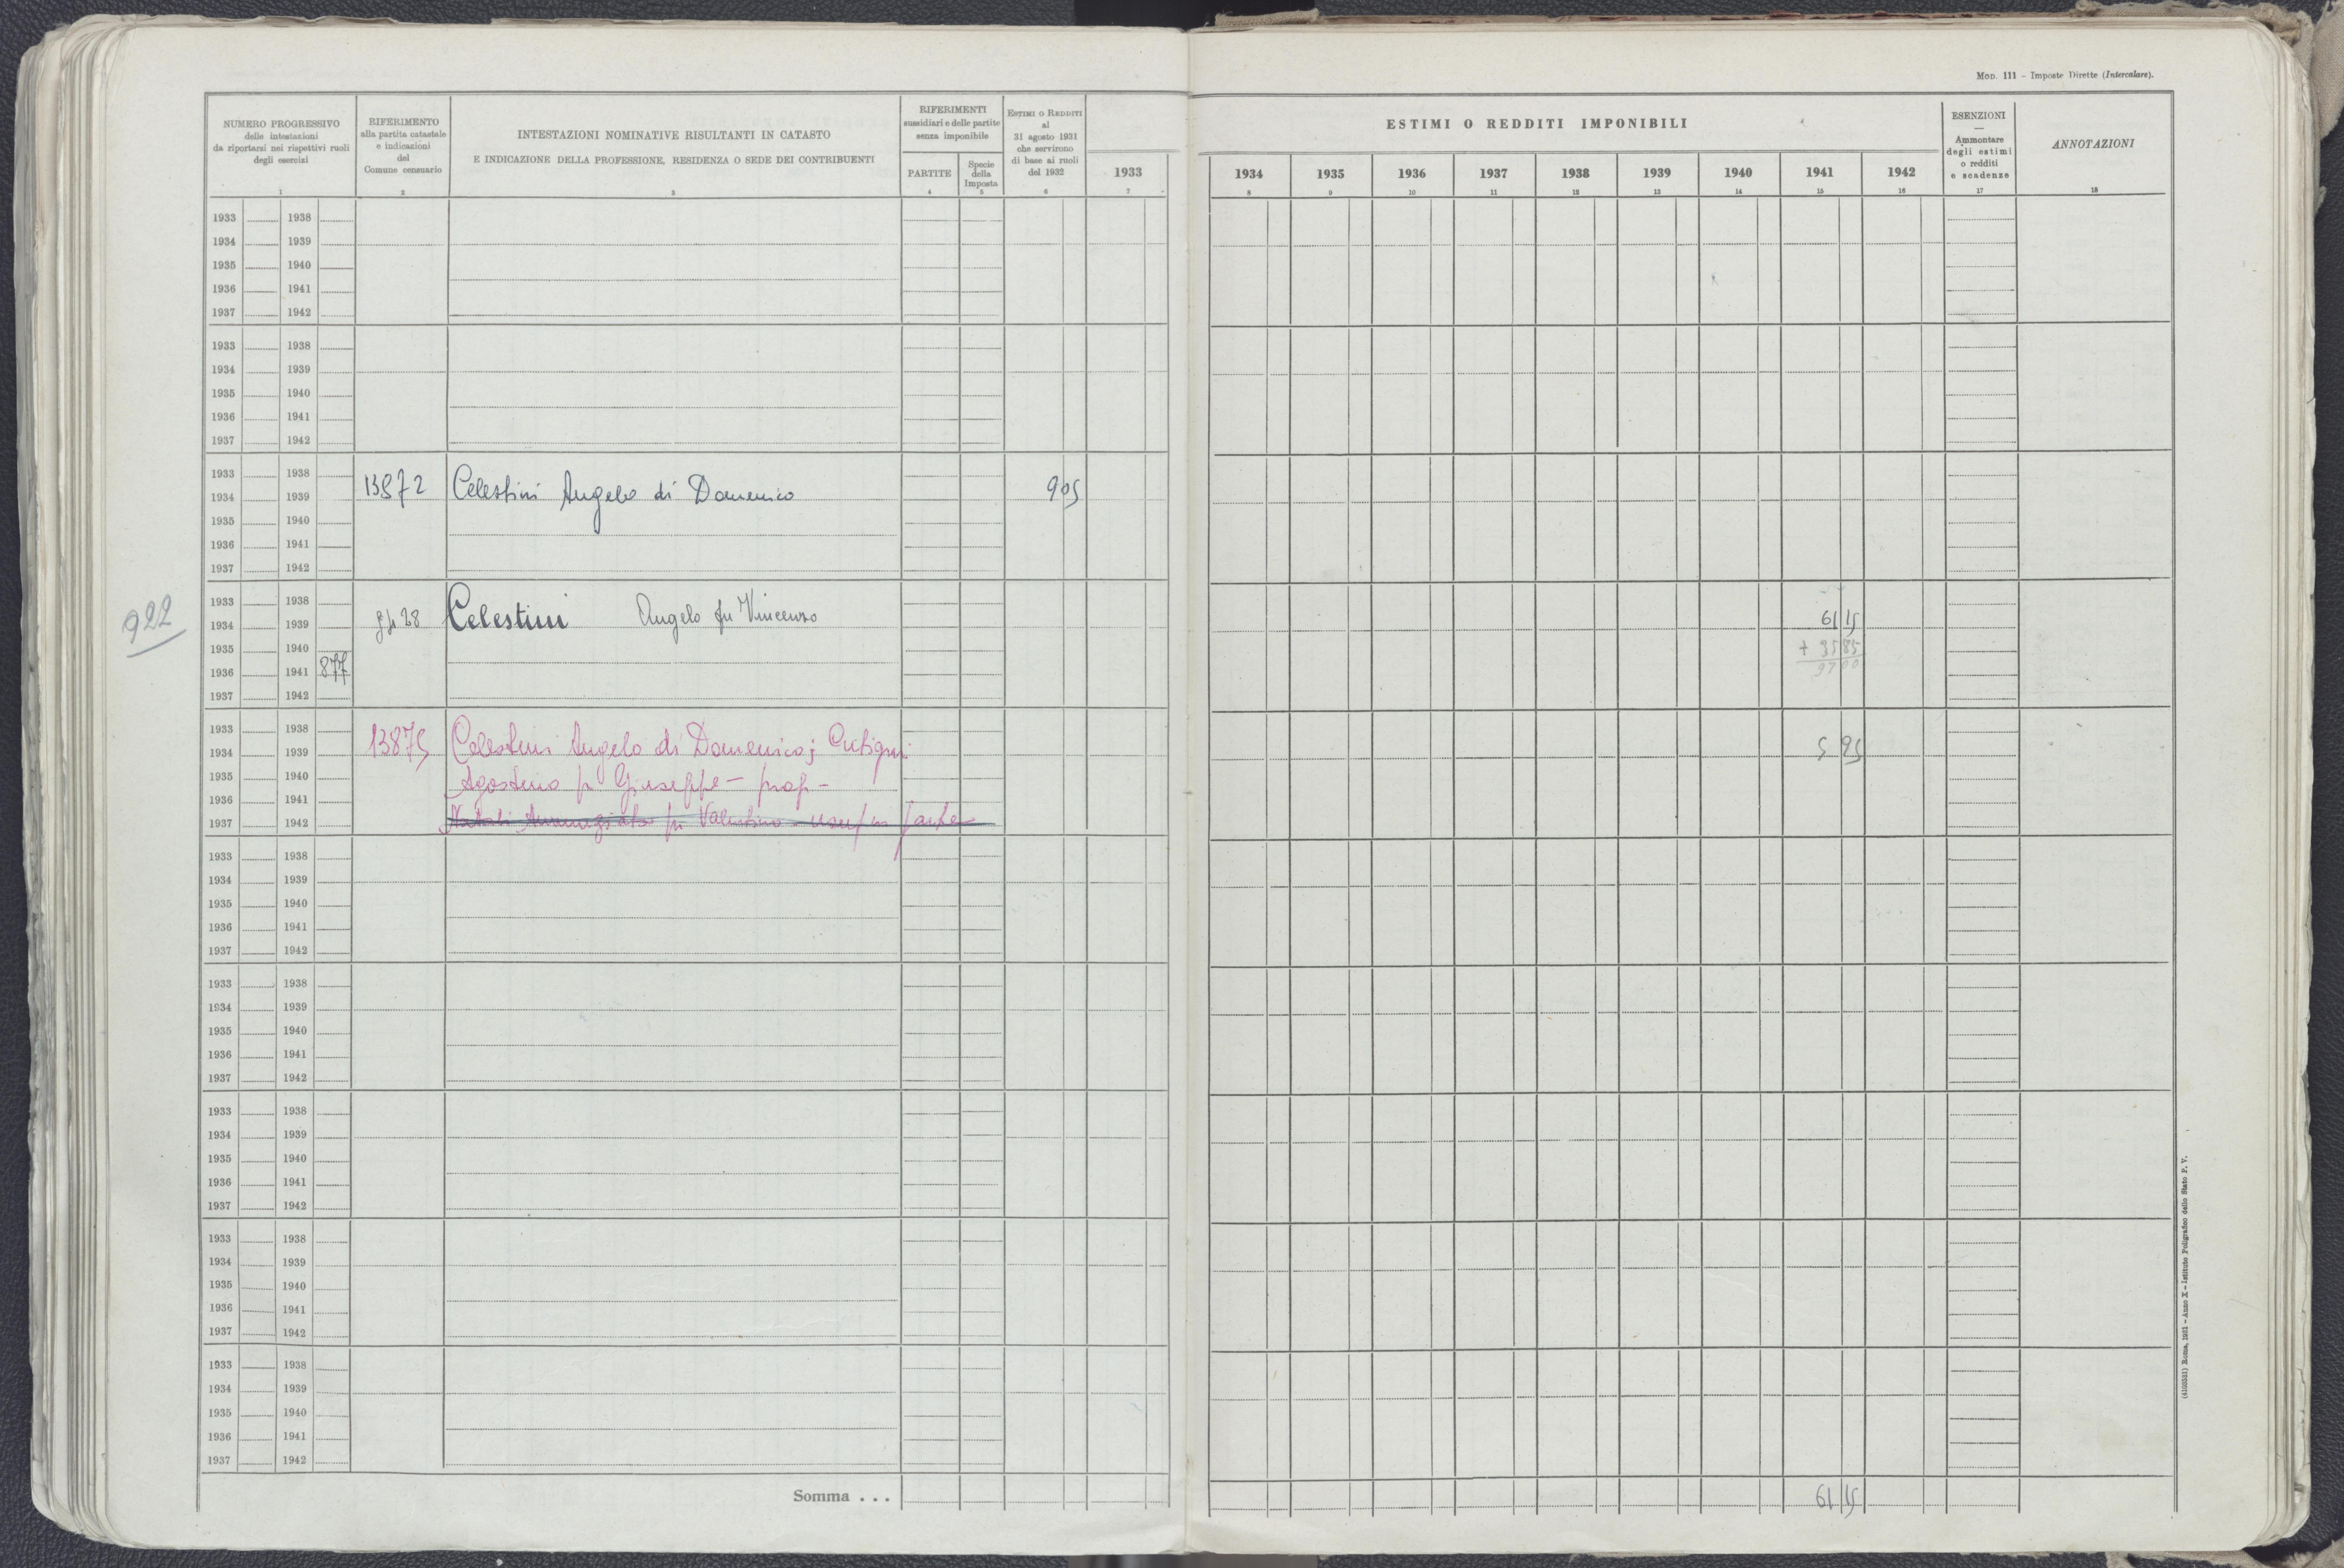 Mod. 111 – Imposte Dirette (Intercalare).
NUMERO PROGRESSIVO
delle intestazioni
da riportarsi nei rispettivi ruoli
degli esercizi
1
RIFERIMENTO
alla partita catastale
e indicazioni
del
Comune censuario
2
INTESTAZIONI NOMINATIVE RISULTANTI IN CATASTO
E INDICAZIONE DELLA PROFESSIONE, RESIDENZA O SEDE DEI CONTRIBUENTI
3
RIFERIMENTI
sussidiari e delle partite
senza imponibile
PARTITE
4
Specie
della
Imposta
5
Estimi o Redditi
al
31 agosto 1931
che servirono
di base ai ruoli
del 1932
6
1933
7
ESTIMI O REDDITI IMPONIBILI
1934 1935 1936 1937 1938 1939 1940 1941 1942
8 9 10 11 12 13 14 15 16
ESENZIONI
—
Ammontare
degli estimi
o redditi
e scadenze
17
ANNOTAZIONI
18
1933 1938
1934 1939
1935 1940
1936 1941
1937 1942
1933 1938
1934 1939
1935 1940
1936 1941
1937 1942
1933 1938
1934 1939 13872 Celestini Angelo di Domenico 905
1935 1940
1936 1941
1937 1942
922
1933 1938
1934 1939 8428 Celestini Angelo fu Vincenzo 61 15
1935 1940 + 35 85
1936 1941 877 97 00
1937 1942
1933 1938
1934 1939 13875 Celestini Angelo di Domenico; Cutigni 5 95
1935 1940 Agostino fu Giuseppe – prop –
1936 1941
1937 1942 Natali Annunziata fu Valentino – usuf in parte
1933 1938
1934 1939
1935 1940
1936 1941
1937 1942
1933 1938
1934 1939
1935 1940
1936 1941
1937 1942
1933 1938
1934 1939
1935 1940
1936 1941
1937 1942
1933 1938
1934 1939
1935 1940
1936 1941
1937 1942
1933 1938
1934 1939
1935 1940
1936 1941
1937 1942
Somma . . . 61 15
(4100531) Roma, 1931 – Anno X – Istituto Poligrafico dello Stato P. V.